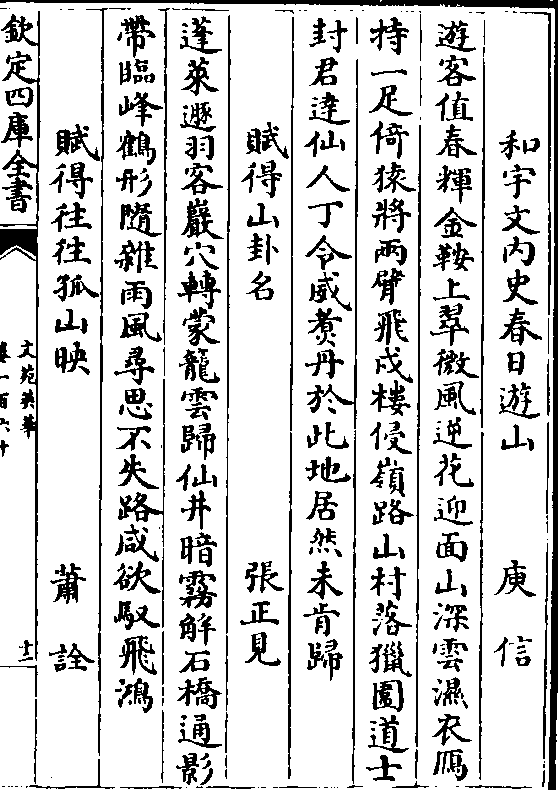 和宇文内史春日遊山　庾信
遊客值春輝金鞍上翠微風逆花迎面山深雲濕衣鴈
持一足倚猿將兩臂飛戍樓侵嶺路山村落獵圍道士
封君達仙人丁令威煑丹於此地居然未肯歸
賦得山卦名　張正見
蓬萊遯羽客巖穴轉蒙籠雲歸仙井暗霧解石橋通影
帶臨峰鶴形隨雜雨風尋思不失路咸欲馭飛鴻
賦得往往孤山映　蕭詮
欽定四庫全書
文苑英華
卷一百六十
十二